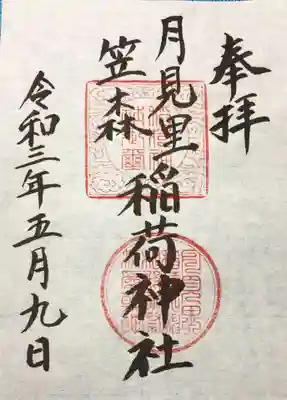 奉拝
月見里
笠森
稲荷神社
令和三年五月九日